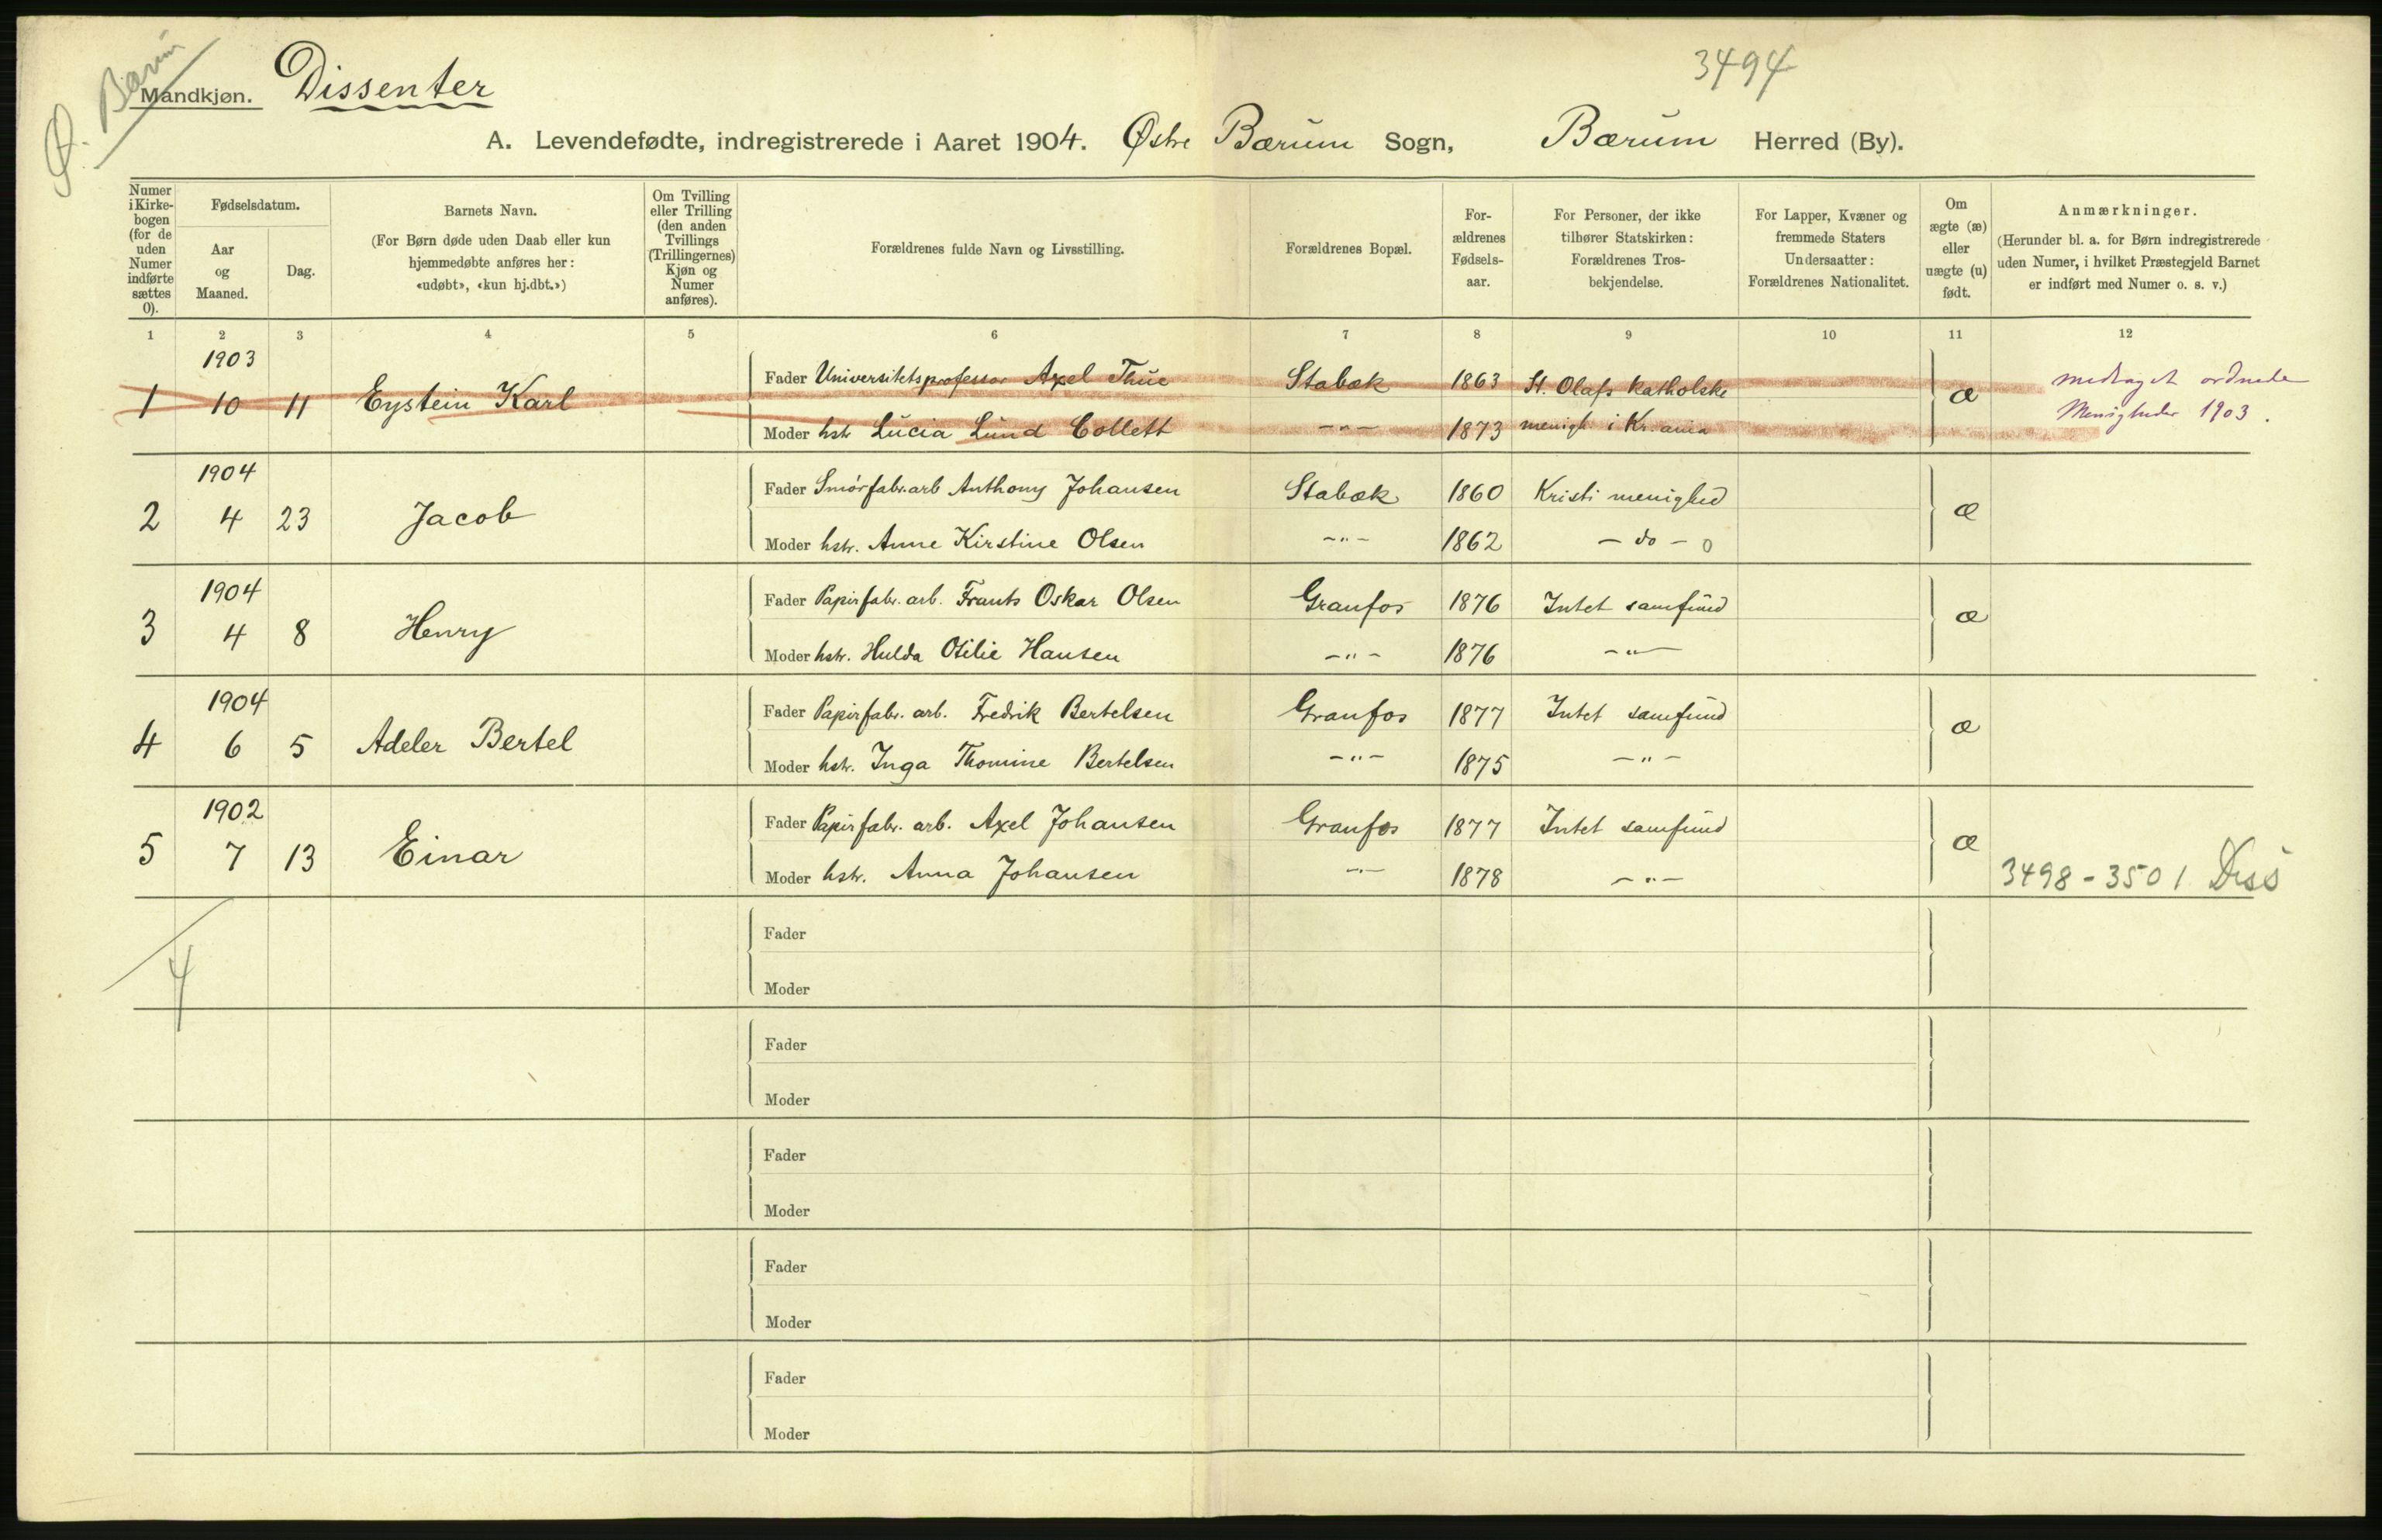 Ø. Bærum
Mandkjøn. Dissenter
3494
A. Levendefødte, indregistrerede i Aaret 1904. Østre Bærum Sogn, Bærum Herred (By).
Numer i Kirkebogen (for de uden Numer indførte sættes 0).
Fødselsdatum.
Aar og Maaned.
Dag.
Barnets Navn.
(For Børn døde uden Daab eller kun
hjemmedøbte anføres her:
«udøbt», «kun hj.dbt.»)
Om Tvilling
eller Trilling
(den anden
Tvillings
(Trillingernes)
Kjøn og
Numer
anføres).
Forældrenes fulde Navn og Livsstilling.
Forældrenes Bopæl.
For-
ældrenes
Fødsels-
aar.
For Personer, der ikke
tilhører Statskirken:
Forældrenes Tros-
bekjendelse.
For Lapper, Kvæner og
fremmede Staters
Undersaatter:
Forældrenes Nationalitet.
Om
ægte (æ)
eller
uægte (u)
født.
Anmærkninger.
(Herunder bl. a. for Børn indregistrerede
uden Numer, i hvilket Præstegjeld Barnet
er indført med Numer o. s. v.)
1 2 3 4 5 6 7 8 9 10 11 12
1903
Fader Universitetsprofessor Axel Thue Stabæk 1863 St. Olafs katholske
1 10 11 Eystein Karl æ
medtaget ordnede
Menigheder 1903.
Moder hstr Lucia Lund Collett -"- 1873 menigh i Kr.ania
1904
Fader Smørfabr.arb Anthony Johansen Stabæk 1860 Kristi menighed
2 4 23 Jacob æ
Moder hstr. Anne Kirstine Olsen -"- 1862 - do - 0
1904
Fader Papirfabr. arb. Frants Oskar Olsen Granfos 1876 Intet samfund
3 4 8 Henry æ
Moder hstr. Hulda Otilie Hansen -"- 1876 -"-
1904
Fader Papirfabr. arb. Fredrik Bertelsen Granfos 1877 Intet samfund
4 6 5 Adeler Bertel æ
Moder hstr. Inga Thomine Bertelsen -"- 1875 -"-
1902
Fader Papirfabr. arb. Axel Johansen Granfos 1877 Intet samfund
5 7 13 Einar æ
Moder hstr. Anna Johansen -"- 1878 -"-
3498-3501 Diss
4
Fader
Moder
Fader
Moder
Fader
Moder
Fader
Moder
Fader
Moder